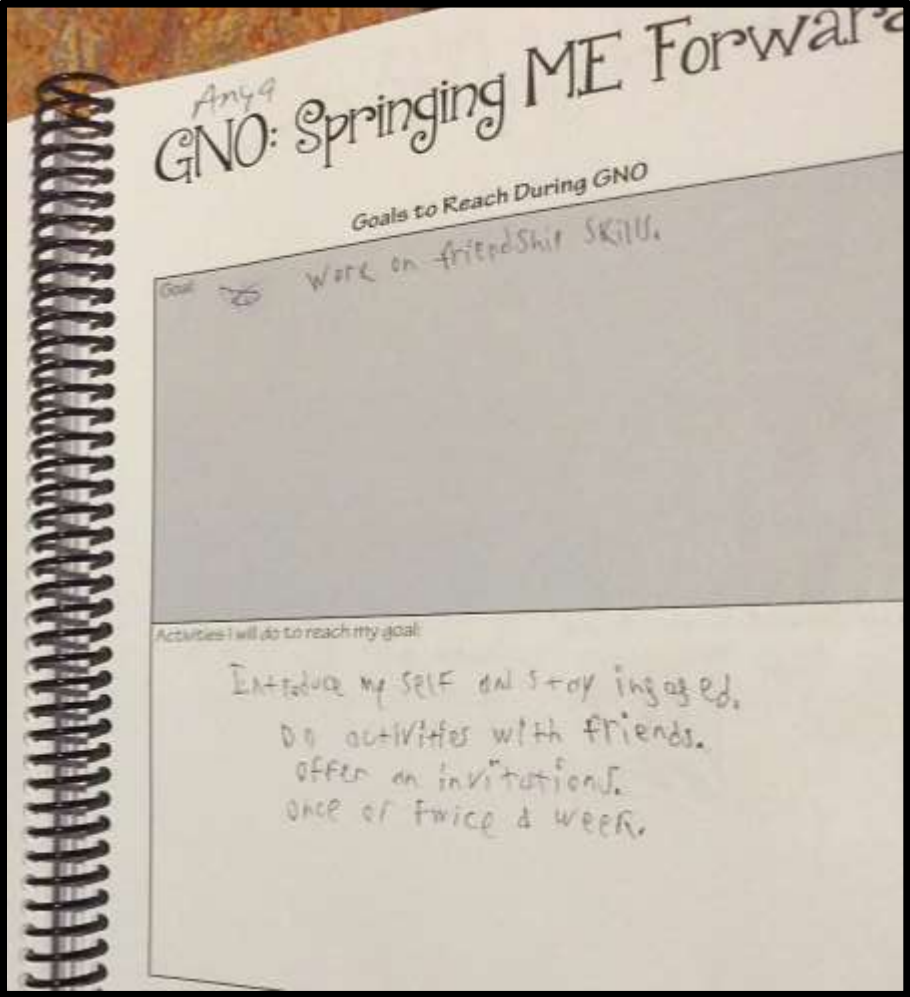 Anya
GNO: Springing ME Forward
Goals to Reach During GNO
Goal:
Work on friendship skills.
Activities I will do to reach my goal:
Introduce my self and stay ingaged.
Do activities with friends.
offer an invitations.
once or twice a week.